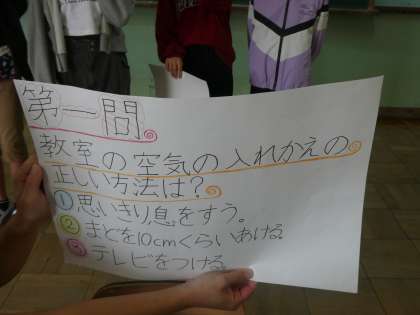 第一問
教室の空気の入れかえの
正しい方法は?
①思いきり息をすう。
②まどを10cmくらいあける
③テレビをつける